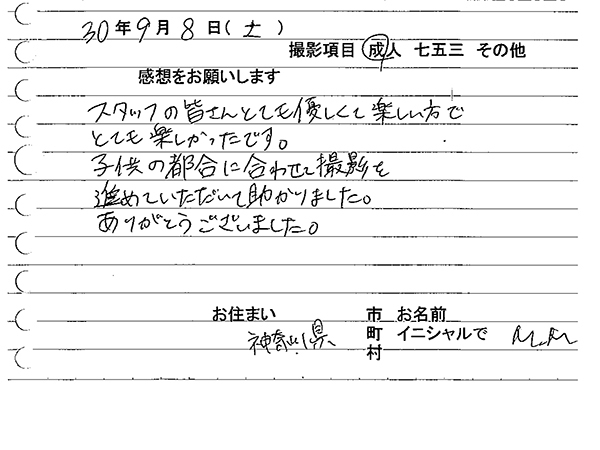 30年9月8日(土)
撮影項目 成人 七五三 その他
感想をお願いします
スタッフの皆さんとても優しくて楽しい方で
とても楽しかったです。
子供の都合に合わせて撮影を
進めていただいて助かりました。
ありがとうございました。
お住まい 市 お名前
神奈川県 町 イニシャルで M.M
村